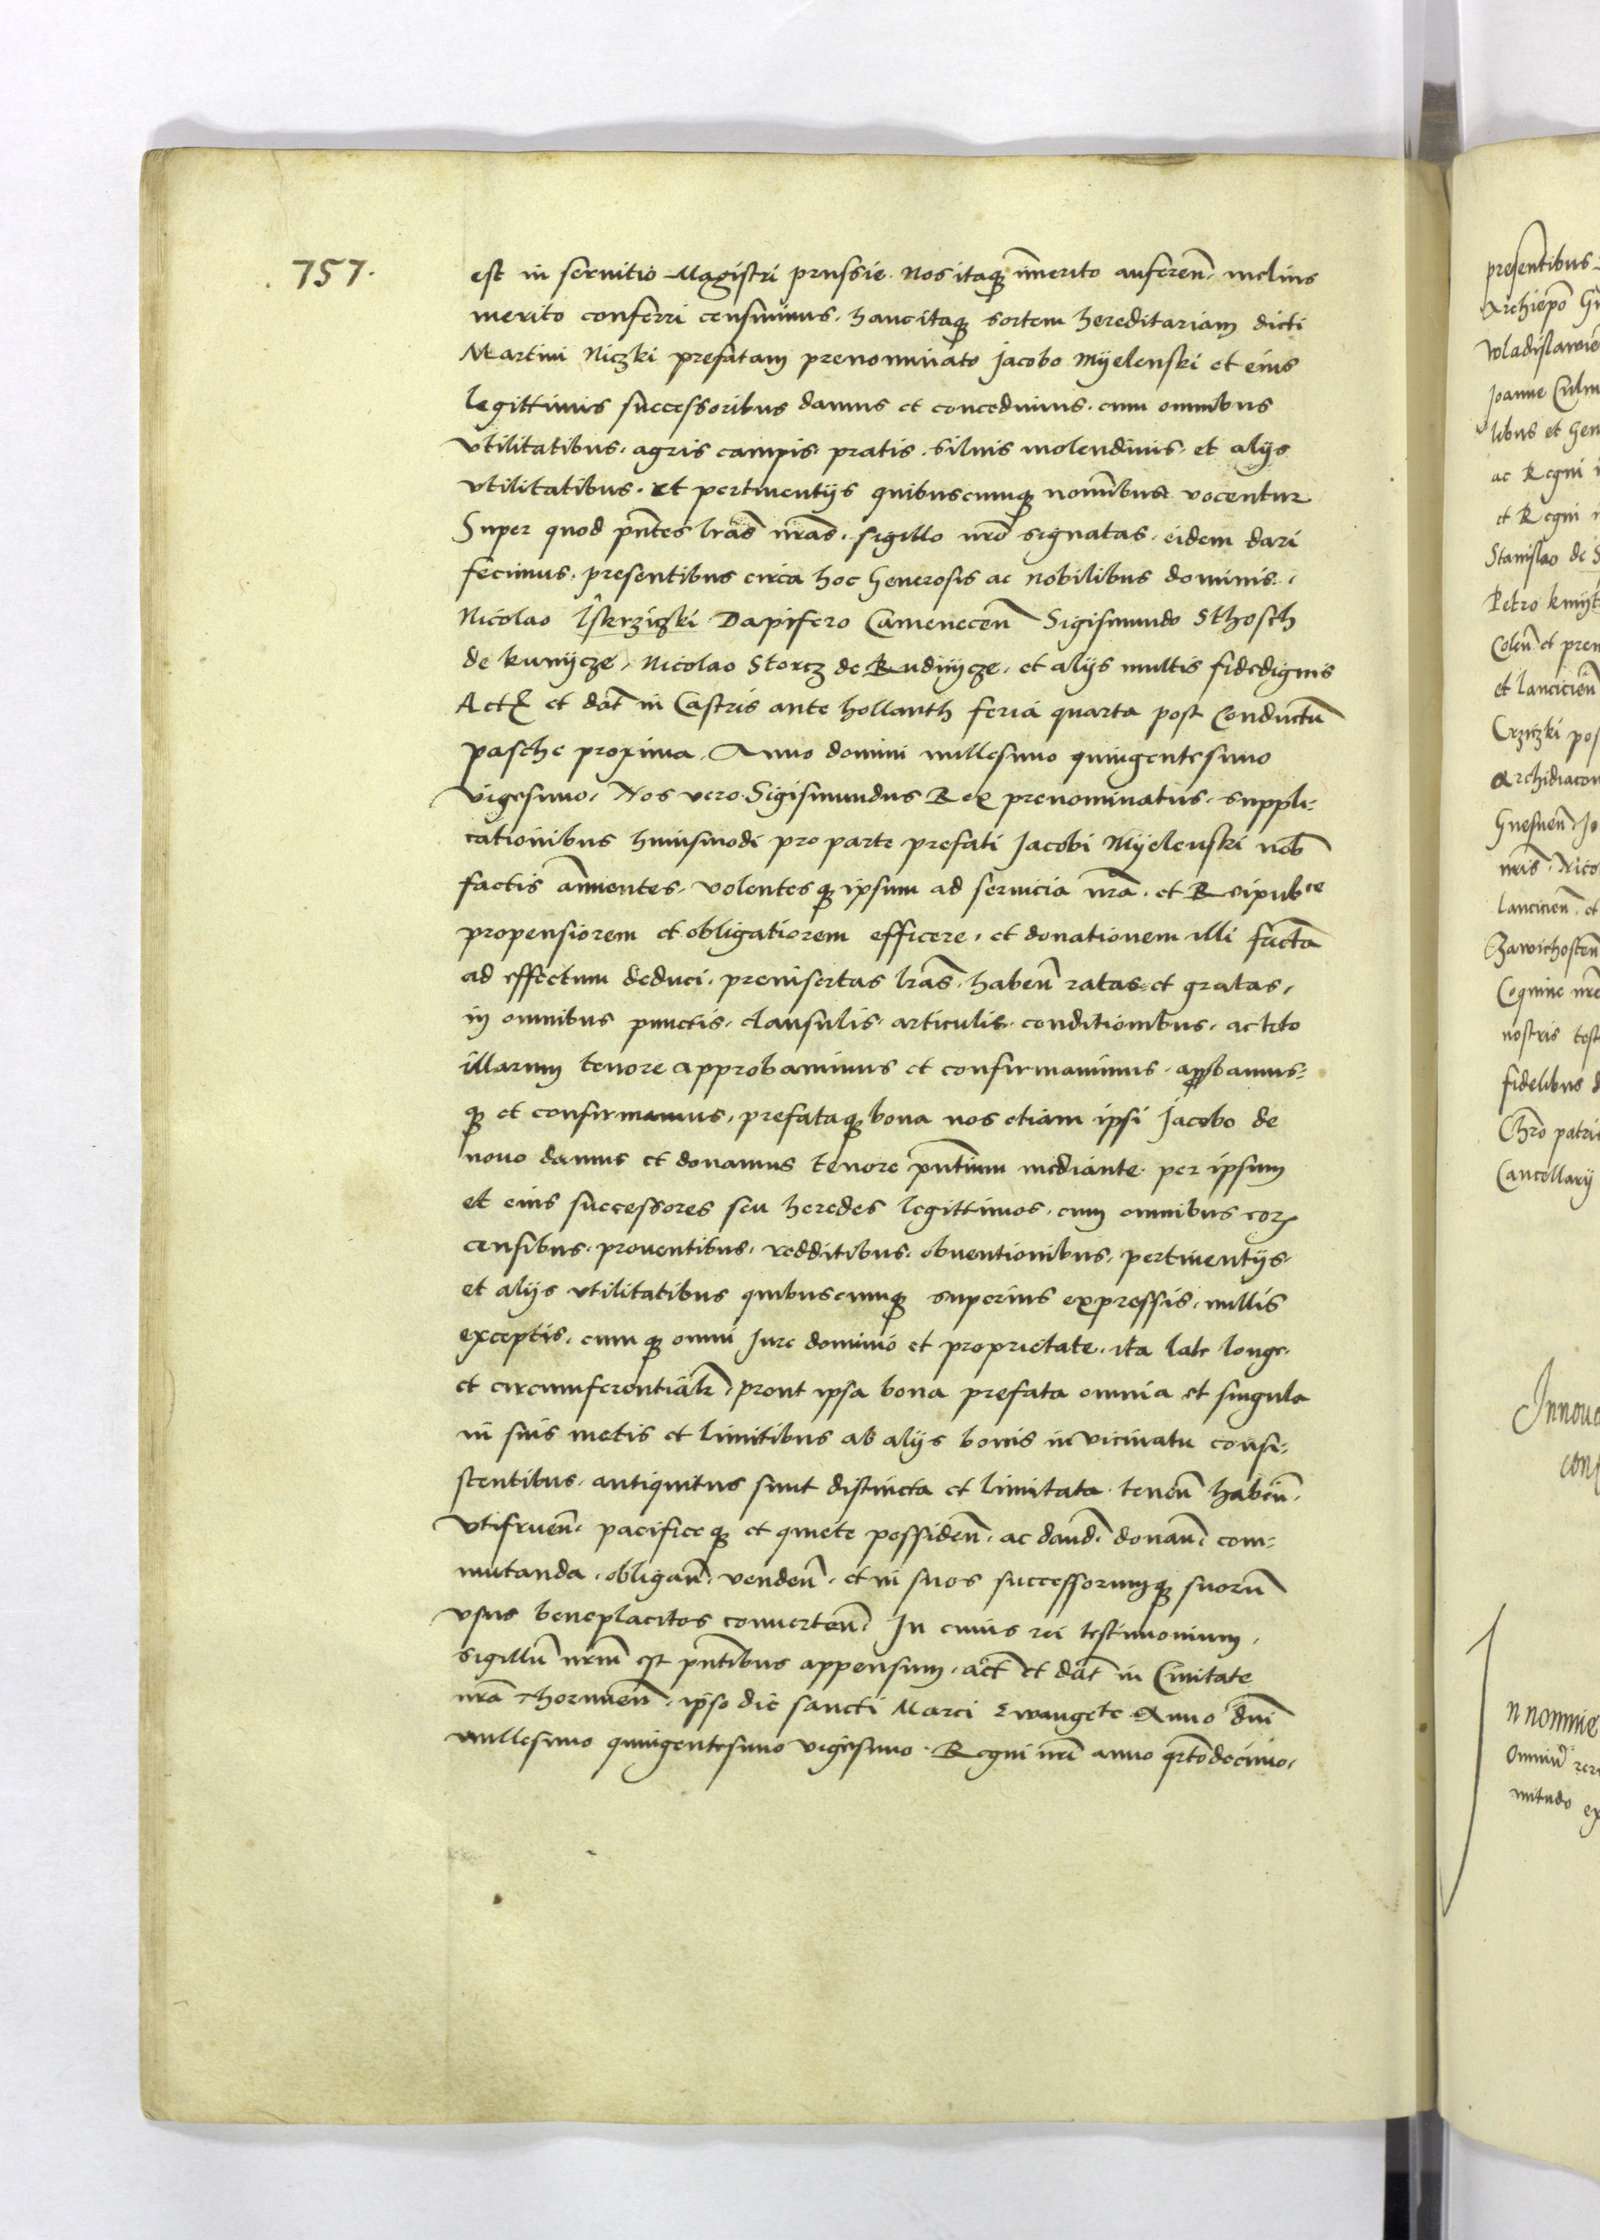 757.
est in seruitio Magistri prussie. Nos itaq₃ īmerito auferen̄. melius
merito conferri censuimus. hanc itaq₃ sortem hereditariam dicti
Martini Niczki prefatam prenominato Jacobo Myelenski et eius
legittimis successoribus damus et concedimus. cum omnibus
vtilitatibus. agris campis. pratis. siluis molendinis. et alijs
vtilitatibus. et pertinentijs quibuscumq₃ nom̄ibus vocentur
Super quod pn̄tes lr̄as nr̄as. sigillo nr̄o signatas. eidem dari
fecimus. presentibus circa hoc Generosis ac nobilibus dominis.
Nicolao Iskrziczki Dapifero Camenecen̄ Sigismundo Sthosch
de kunijcze. Nicolao Storcz de Rudnijcze. et alijs multis fidedignis
Act₃ et dat̄ in Castris ante hollanth feria quarta post Conductū
pasche proxima. Anno domini millesimo quingentesimo
vigesimo. Nos vero Sigismundus Rex prenominatus. suppli-
cationibus huiusmodi pro parte prefati Jacobi Myelenski nob̄
factis an̄uentes. volentesq₃ ipsum ad seruicia nr̄a. et Reipubce
propensiorem et obligatiorem efficere. et donationem illi factā
ad effectum deduci. preinsertas lr̄as. haben̄ ratas et gratas.
in omnibus punctis. clausulis. articulis. conditionibus. ac toto
illarum tenore approbauimus et confirmauimus. approbamus-
q₃ et confirmamus. prefataq₃ bona nos etiam ipsi Jacobo de
nouo damus et donamus tenore pn̄tium mediante. per ipsum
et eius successores seu heredes legittimos. cum omnibus eor₃
censibus. prouentibus. redditibus. obuentionibus. pertinentijs.
et alijs vtilitatibus quibuscumq₃ superius expressis. nullis
exceptis. cumq₃ omni Jure dominio et proprietate. ita late longe.
et circumferentialr̄. prout ipsa bona prefata omnia et singula
in suis metis et limitibus ab alijs bonis in vicinatu consi-
stentibus. antiquitus sunt distincta et limitata. tenen̄ haben̄.
vtifruen̄. pacificeq₃ et quiete possiden̄. ac dand̄. donan̄. com-
mutanda. obligan̄. venden̄. et in suos successorumq₃ suorū
vsus beneplacitos conuerten̄. In cuius rei testimonium.
sigillū nr̄m est pn̄tibus appensum. act̄ et dat̄ in Ciuitate
nr̄a Thorunen̄. ipso die sancti Marci Ewangete Anno dn̄i
millesimo quingentesimo vigesimo. Regni nr̄i anno qr̄todecimo.
presentibus
Archiepō
Joanne
libus et
ac Regni
et Regni
Stanislao de
Petro
Colen̄ et
et lancicien̄
Crziczki
Archidiacon
Gnesnen̄
nr̄is. Nico
lancicien̄. et
Zawichosten̄
Coquine
nostris
fidelibus
Chr̄o
Cancellarij
Innoua
con